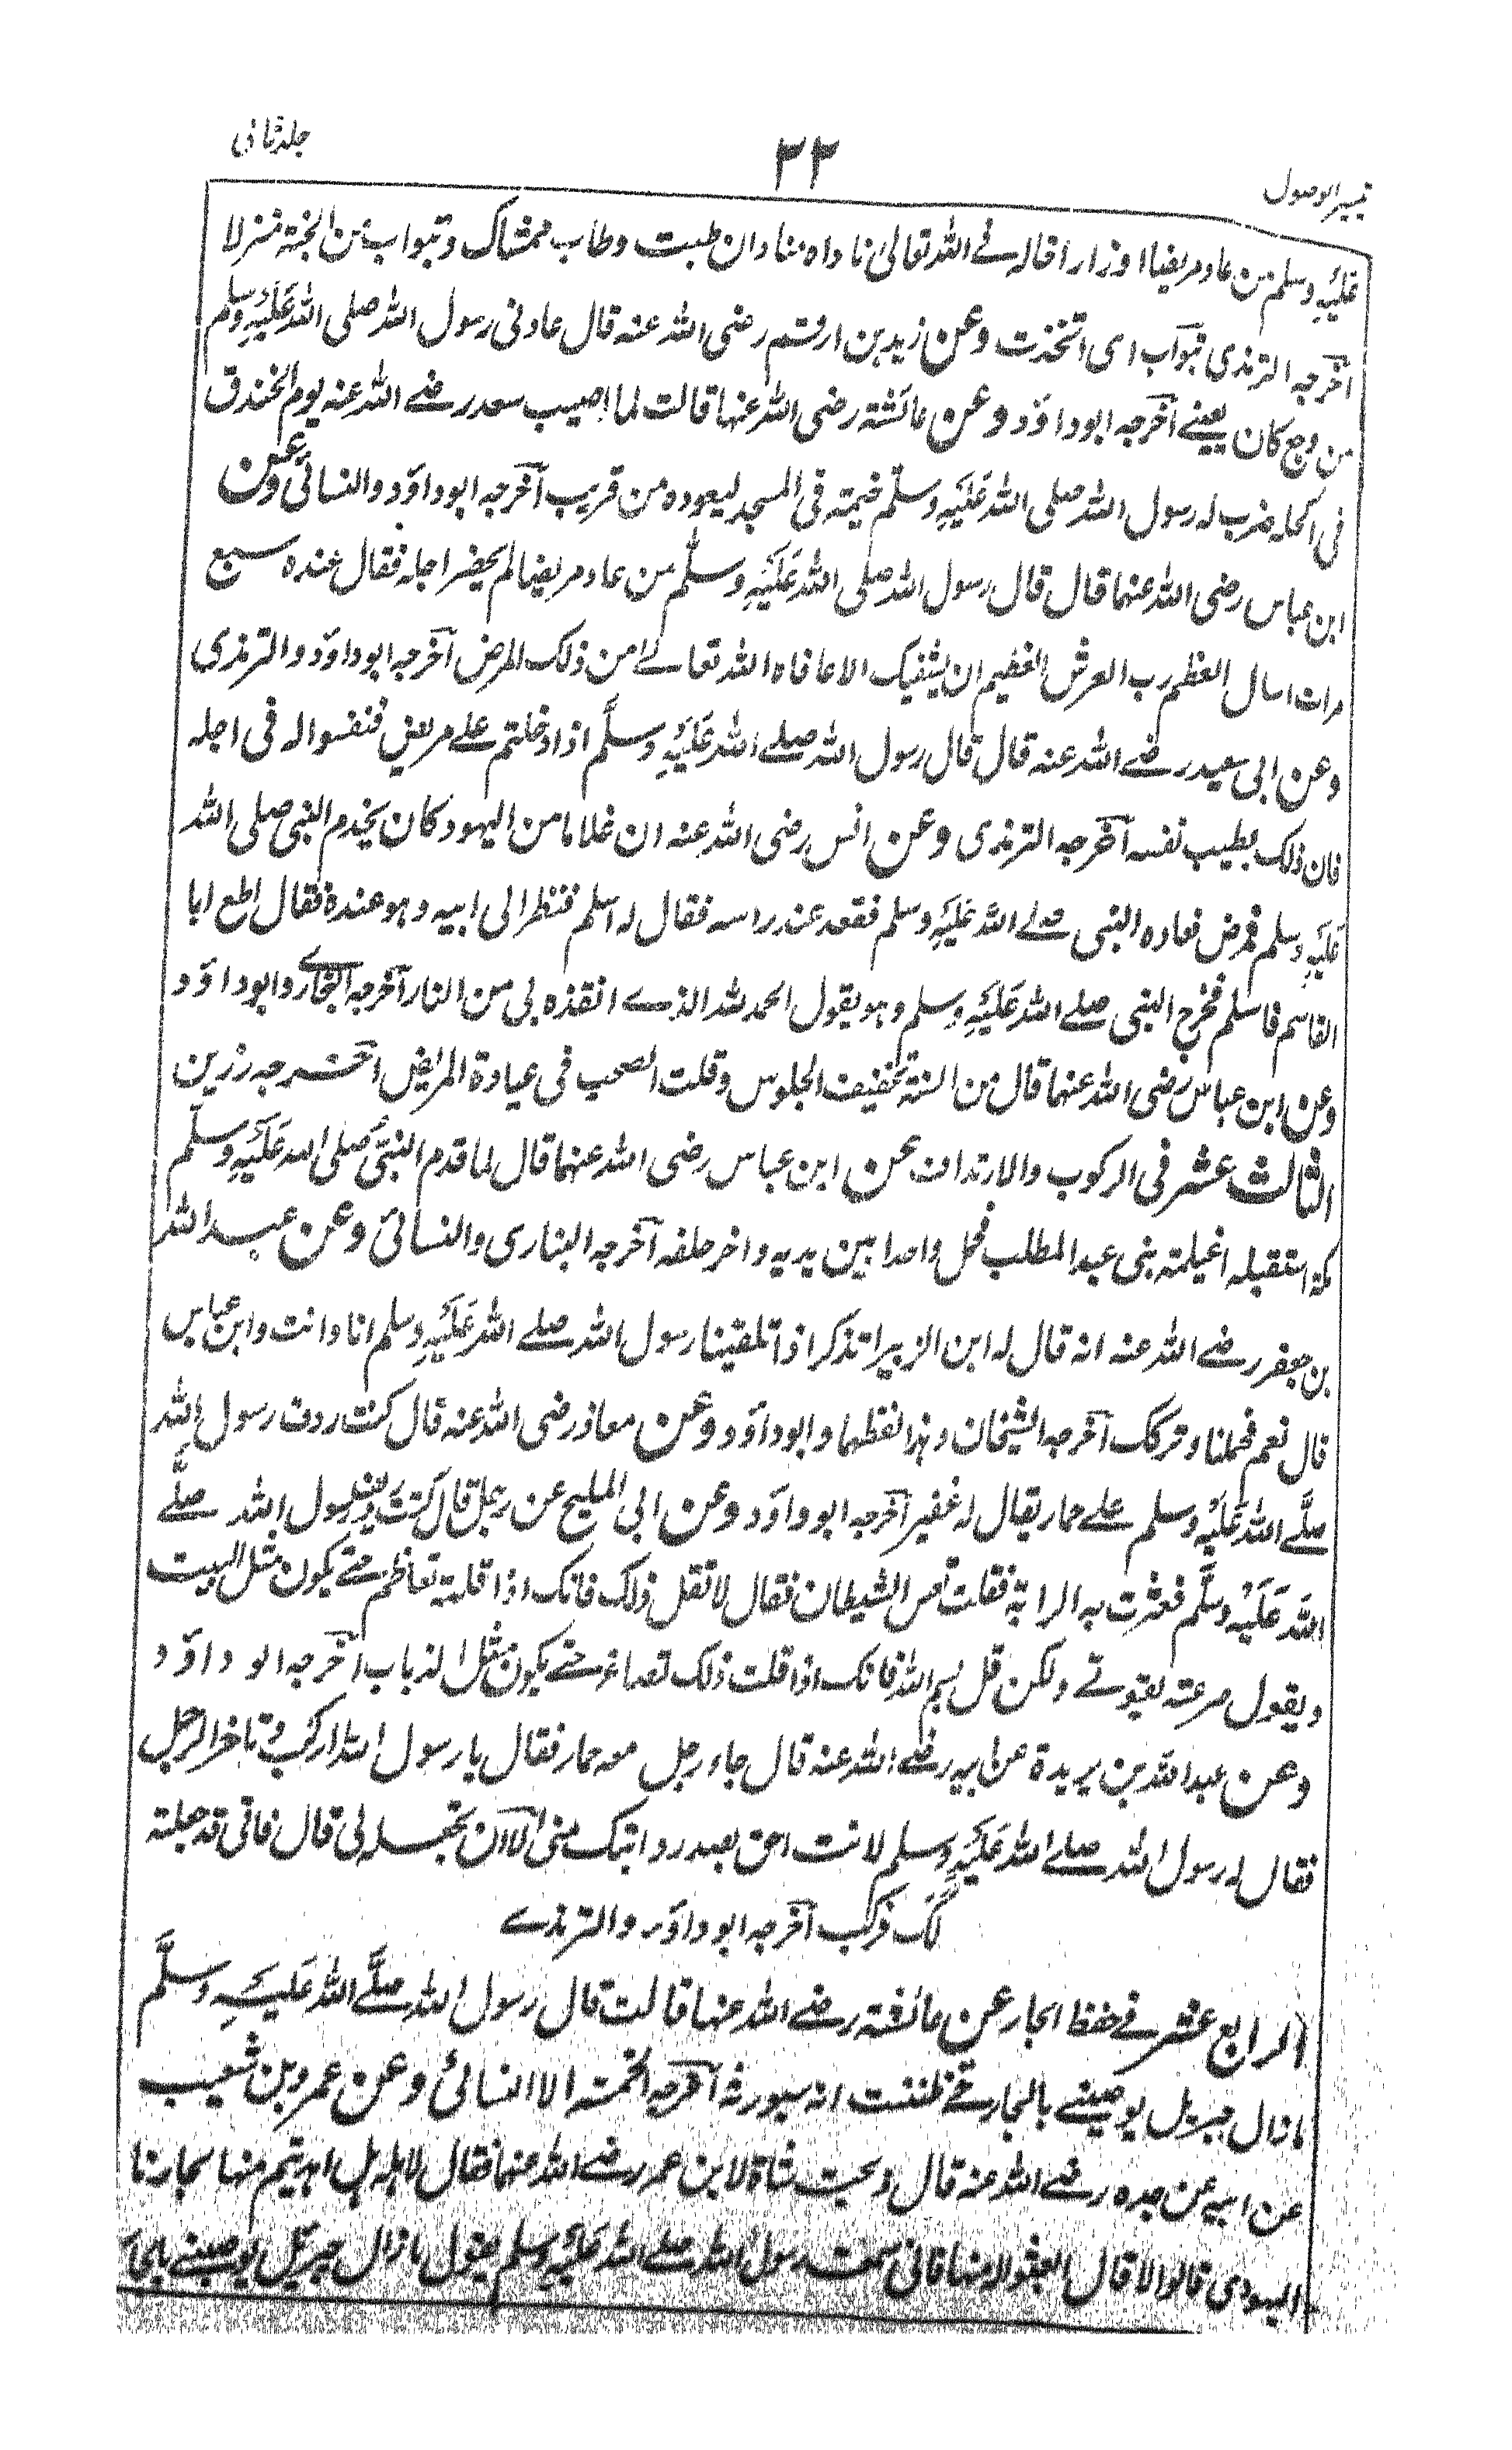 تيسير الوصول
٣٣
جلد ثانی
عليه وسلم من عاد مريضا او زار اخا له في الله تعالى ناداه مناد ان طبت وطاب ممشاك وتبوأت من الجنة منزلا
اخرجه الترمذی تبوأت ای اتخذت وعن زيد بن ارقم رضی الله عنه قال عادنی رسول الله صلی الله عليه وسلم
من وجع كان بعينے اخرجه ابوداود وعن عائشة رضی الله عنها قالت لما اصيب سعد رضے الله عنه يوم الخندق
فی اكحله ضرب له رسول الله صلی الله عليه وسلم خيمة فی المسجد ليعوده من قريب اخرجه ابوداود والنسائی وعن
ابن عباس رضی الله عنهما قال قال رسول الله صلی الله عليه وسلم من عاد مريضا لم يحضر اجله فقال عنده سبع
مرات اسال الله العظيم رب العرش العظيم ان يشفيك الا عافاه الله تعالے من ذلك المرض اخرجه ابوداود والترمذی
وعن ابی سعيد رضے الله عنه قال قال رسول الله صلے الله عليه وسلم اذا دخلتم علے مريض فنفسوا له فی اجله
فان ذلك يطيب نفسه اخرجه الترمذی وعن انس رضی الله عنه ان غلاما من اليهود كان يخدم النبی صلی الله
عليه وسلم فمرض فعاده النبی صلے الله عليه وسلم فقعد عند راسه فقال له اسلم فنظر الی ابيه وهو عنده فقال اطع ابا
القاسم فاسلم فخرج النبی صلے الله عليه وسلم وهو يقول الحمد لله الذے انقذه بی من النار اخرجه البخارے وابوداود
وعن ابن عباس رضی الله عنهما قال من السنة تخفيف الجلوس وقلت الصحب فی عيادة المريض اخرجه رزين
الثالث عشر فی الركوب والارتداف عن ابن عباس رضی الله عنهما قال لما قدم النبی صلی الله عليه وسلم
مكة استقبله اغيلمة بنی عبد المطلب فحمل واحدا بين يديه واخر خلفه اخرجه البخاری والنسائی وعن عبد الله
بن جعفر رضے الله عنه انه قال له ابن الزبير اتذكر اذ تلقينا رسول الله صلے الله عليه وسلم انا وانت وابن عباس
قال نعم فحملنا وتركك اخرجه الشيخان وهذا لفظهما وابوداود وعن معاذ رضی الله عنه قال كنت ردف رسول الله
صلے الله عليه وسلم علے حمار يقال له عفير اخرجه ابوداود وعن ابی المليح عن رجل قال كنت رديف رسول الله صلے
الله عليه وسلم فعثرت به الدابة فقلت تعس الشيطان فقال لا تقل ذلك فانك اذا قلته تعاظم حتے يكون مثل البيت
ويقول صرعته بقوتے ولكن قل بسم الله فانك اذا قلت ذلك تصاغر حتے يكون مثل الذباب اخرجه ابو داود
وعن عبد الله بن بريدة عن ابيه رضے الله عنه قال جاء رجل معه حمار فقال يا رسول الله اركب وتاخر الرجل
فقال له رسول الله صلے الله عليه وسلم لانت احق بصدر دابتك منی الا ان تجعله لی قال فانی قد جعلته
لك فركب اخرجه ابوداود والترمذے
الرابع عشر فے حفظ الجار عن عائشة رضے الله عنها قالت قال رسول الله صلے الله عليه وسلم
ما زال جبريل يوصينے بالجار حتے ظننت انه سيورثه اخرجه الخمسة الا النسائی وعن عمرو بن شعيب
عن ابيه عن جده رضے الله عنه قال ذبحت شاة لابن عمر رضے الله عنهما فقال لاهله هل اهديتم منها لجارنا
اليهودی قالوا لا قال ابعثوا له منها فانی سمعت رسول الله صلے الله عليه وسلم يقول ما زال جبريل يوصينے بالجار